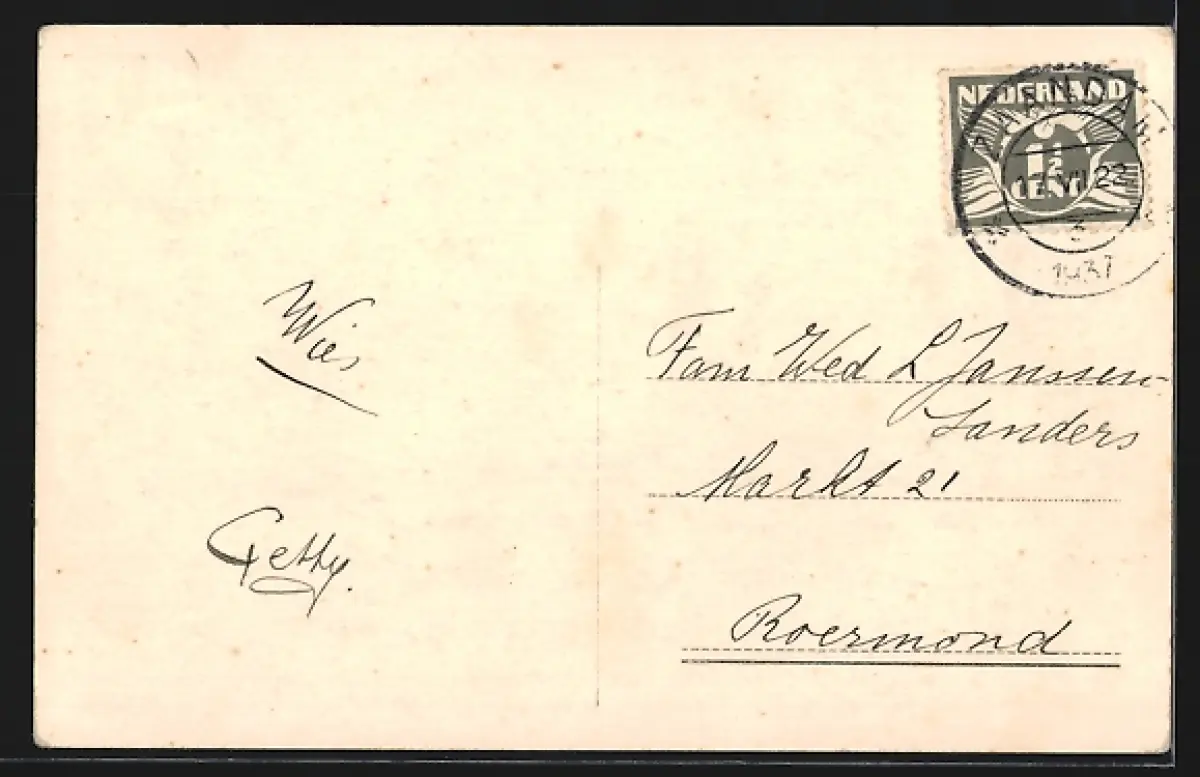 NEDERLAND
1½
CENT
ZAANDAM
17 VII 22
3
1937
Wies
Getty.
Fam Wed L Janssen-
Sanders
Markt 21
Roermond